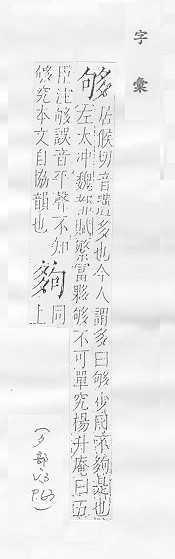 字彙
够 居候切音遘多也今人謂多曰够少曰不夠是也
左太沖魏都賦繁富夥够不可單究楊升庵曰五
臣注够誤音平聲不知
够究本文自協韻也 夠 同上
(夕部
V.3
P.63)